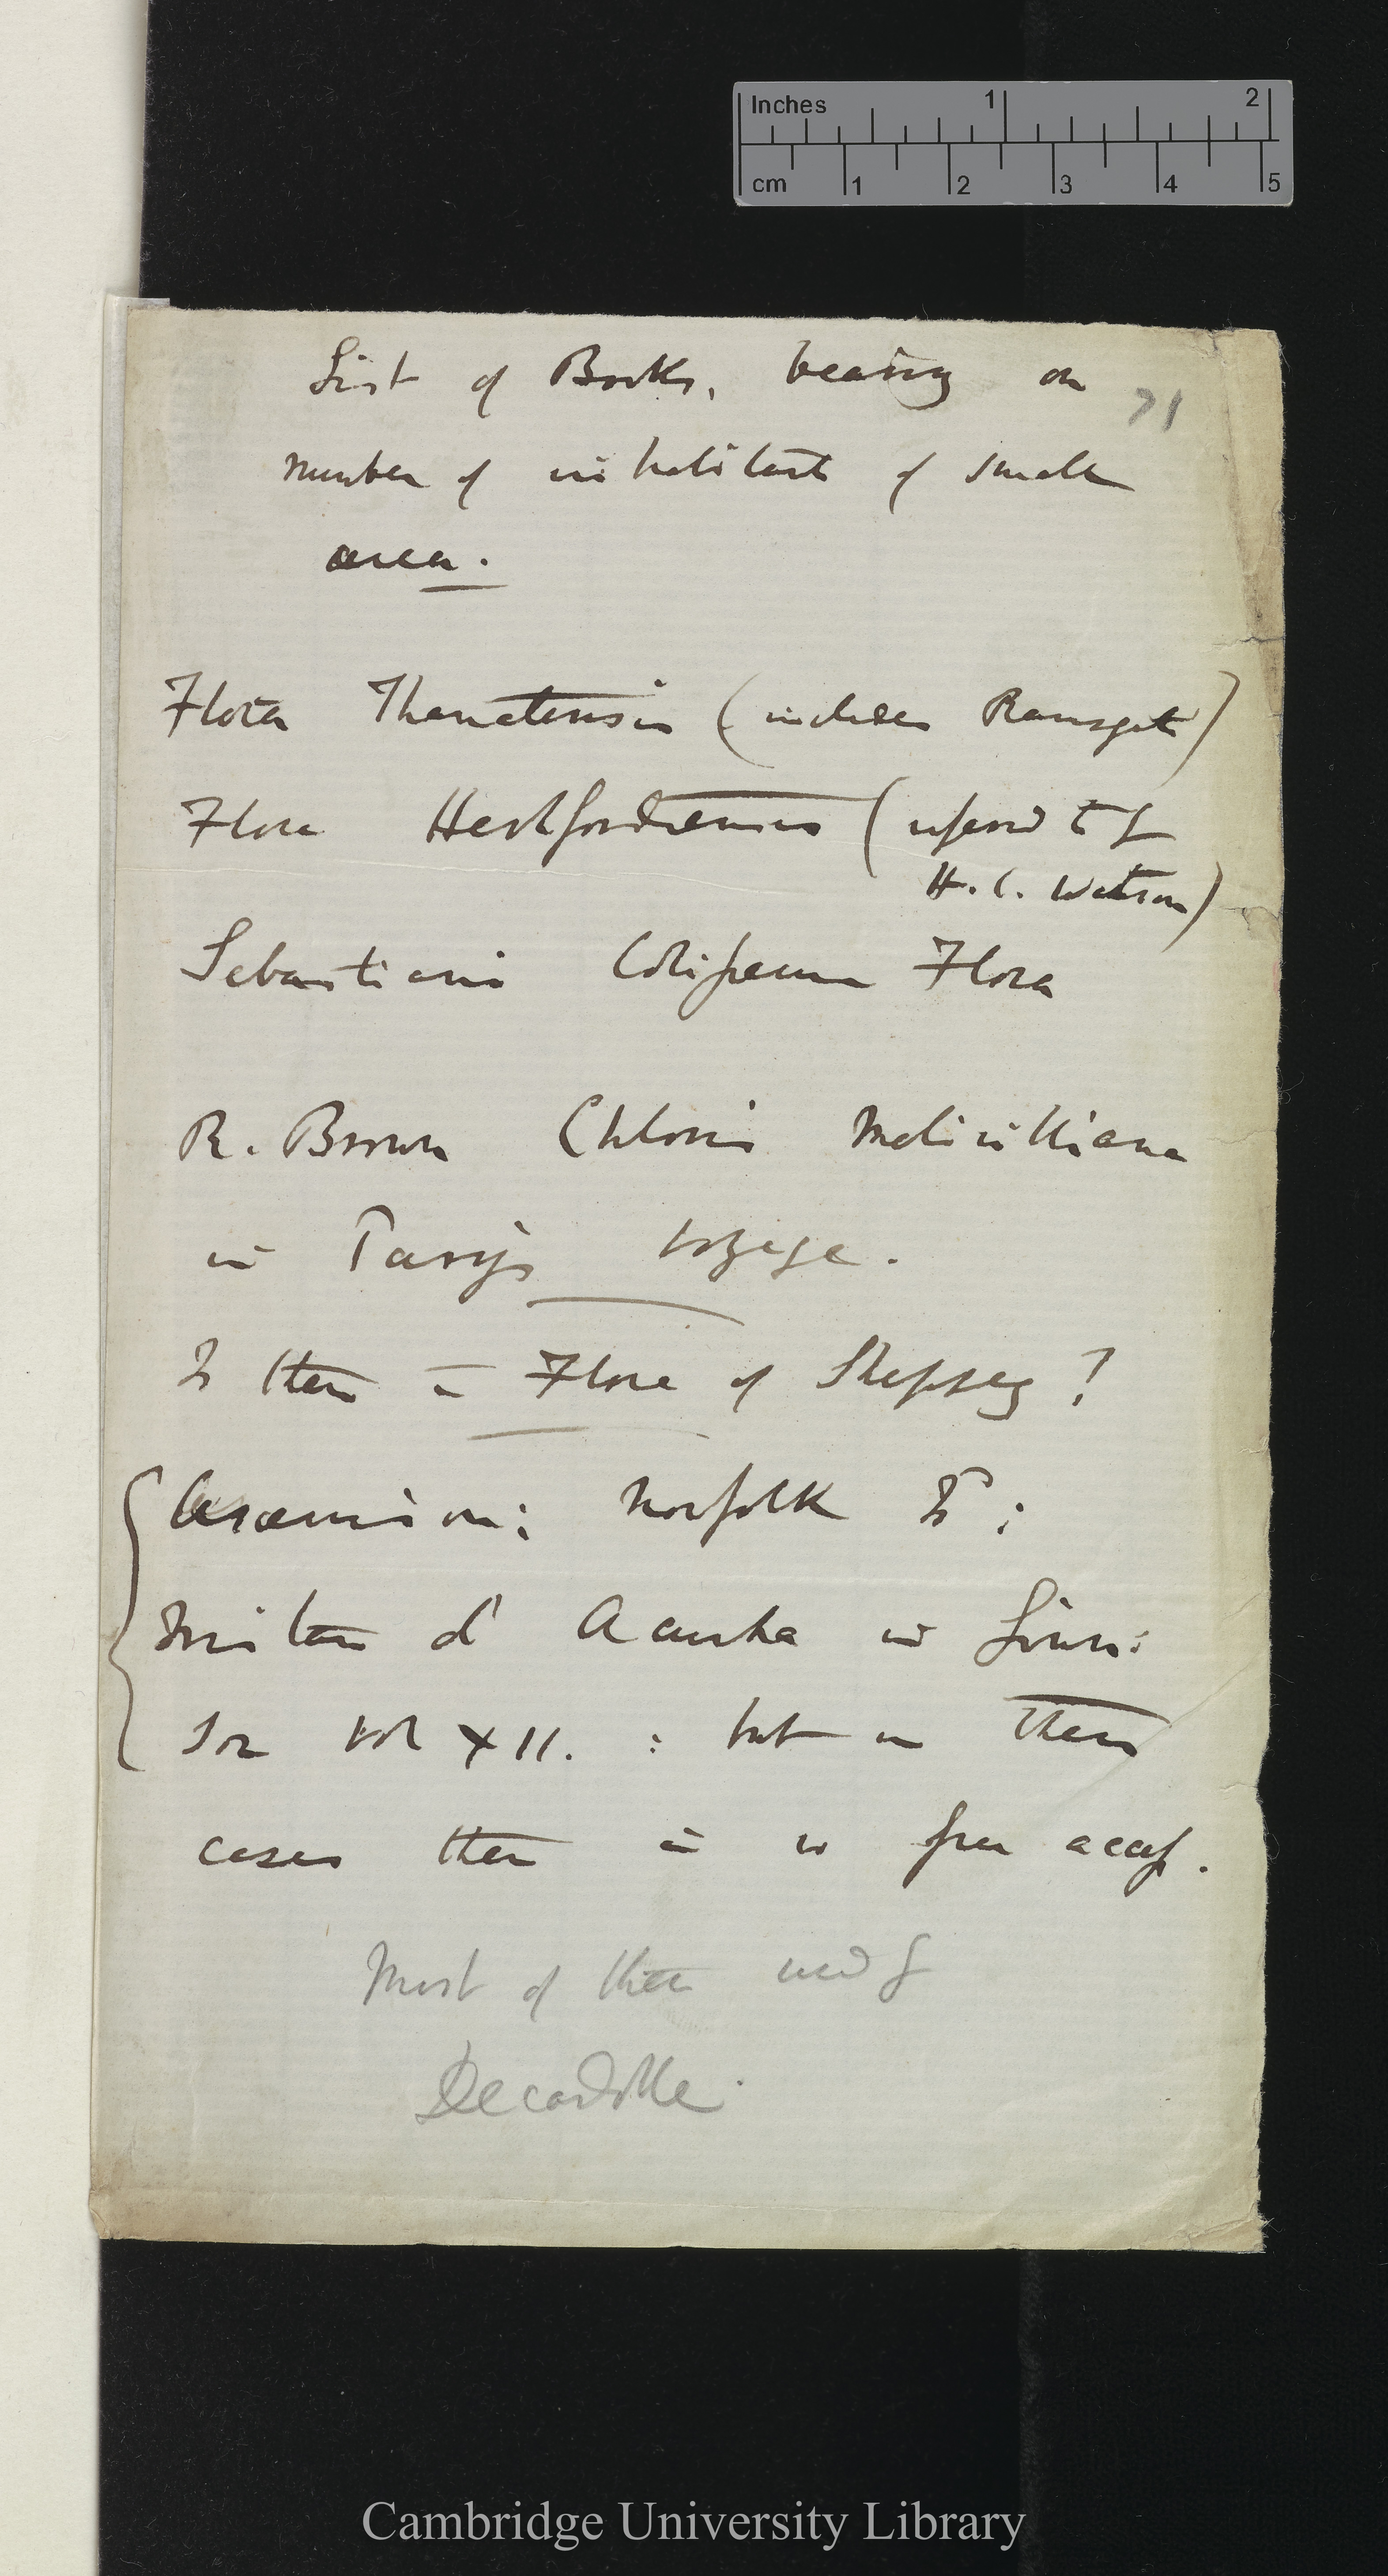 Inches 1 2
cm 1 2 3 4 5
List of Books, bearing on
71
number of inhabitants of small
area.
Flora Thanetensis (includes Ramsgate)
Flora Hertfordiensis (referred to by
H. C. Watson)
Sebastiani Colisseum Flora
R. Brown Chloris Melvilliana
in Parry's Voyage.
Is there a Flora of Sheppey?
Norfolk Isd;
Tristan d'Acunha in Linn:
Soc vol XII. : but in these
cases there is no free access.
Most of these used by
Decandolle.
Cambridge University Library